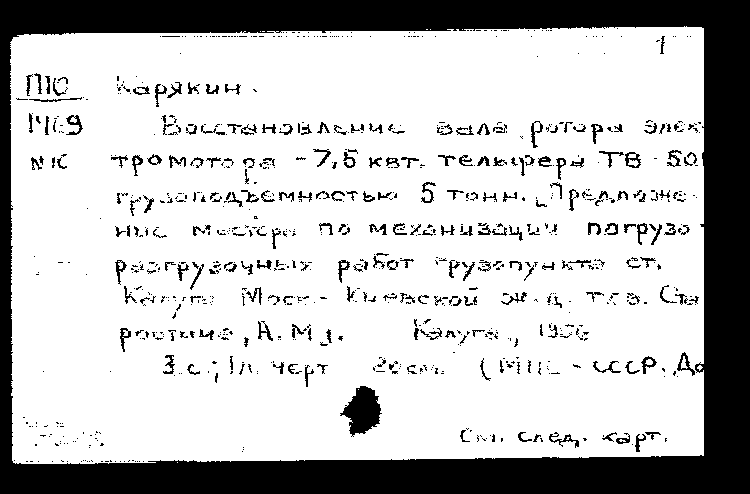 1
П10 Карякин.
1469 Восстановление вала ротора элек-
тромотора - 7,5 квт. тельфера ТВ
грузоподъёмностью 5 тонн. [Предложе-
ние мастера по механизации погрузо-
разгрузочных работ грузопункта ст.
Калуга Моск.- Киевской ж.д. тов. Ста
А.М]. Калуга, 1956
3 с.; 1л. черт 20см. (МПС - СССР.
См. след. карт.